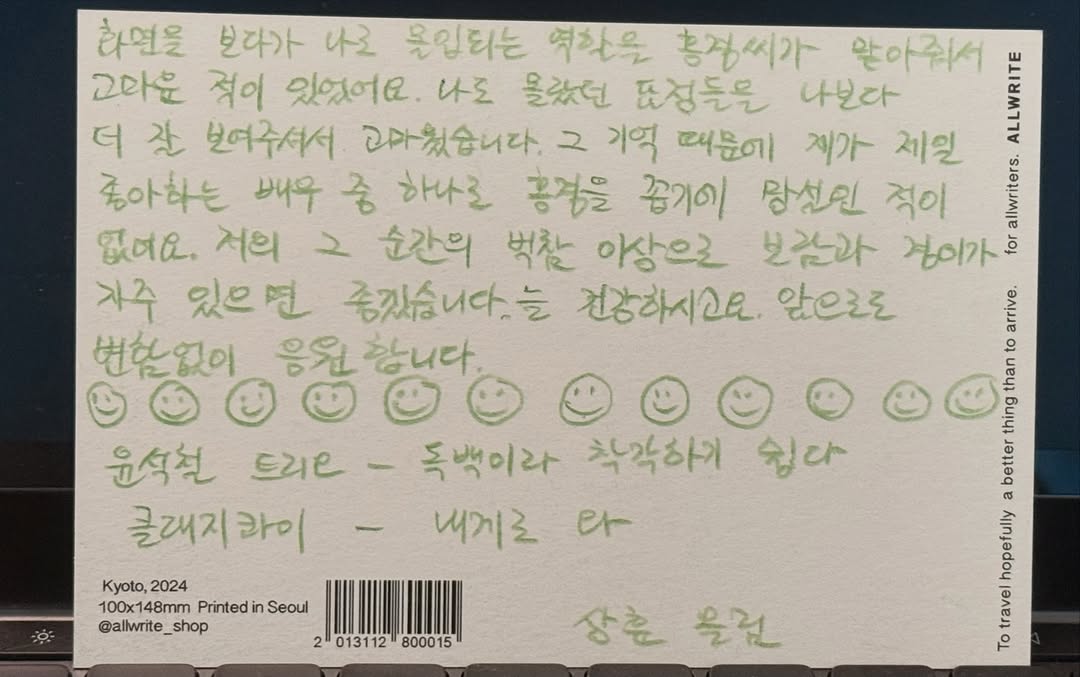 화면을 보다가 나로 몰입되는 역할을 홍경씨가 맡아줘서
고마운 적이 있었어요. 나도 몰랐던 표정들을 나보다
더 잘 보여주셔서 고마웠습니다. 그 기억 때문에 제가 제일
좋아하는 배우 중 하나로 홍경을 꼽기에 망설인 적이
없어요. 저의 그 순간의 벅참 이상으로 보람과 경이가
자주 있으면 좋겠습니다. 늘 건강하시고요. 앞으로도
변함없이 응원합니다.
윤석철 트리오 - 독백이라 착각하기 쉽다
클래지콰이 - 내게로 와
Kyoto, 2024
100x148mm Printed in Seoul
@allwrite_shop
2 013112 800015
상훈 올림
To travel hopefully a better thing than to arrive. for allwriters. ALLWRITE